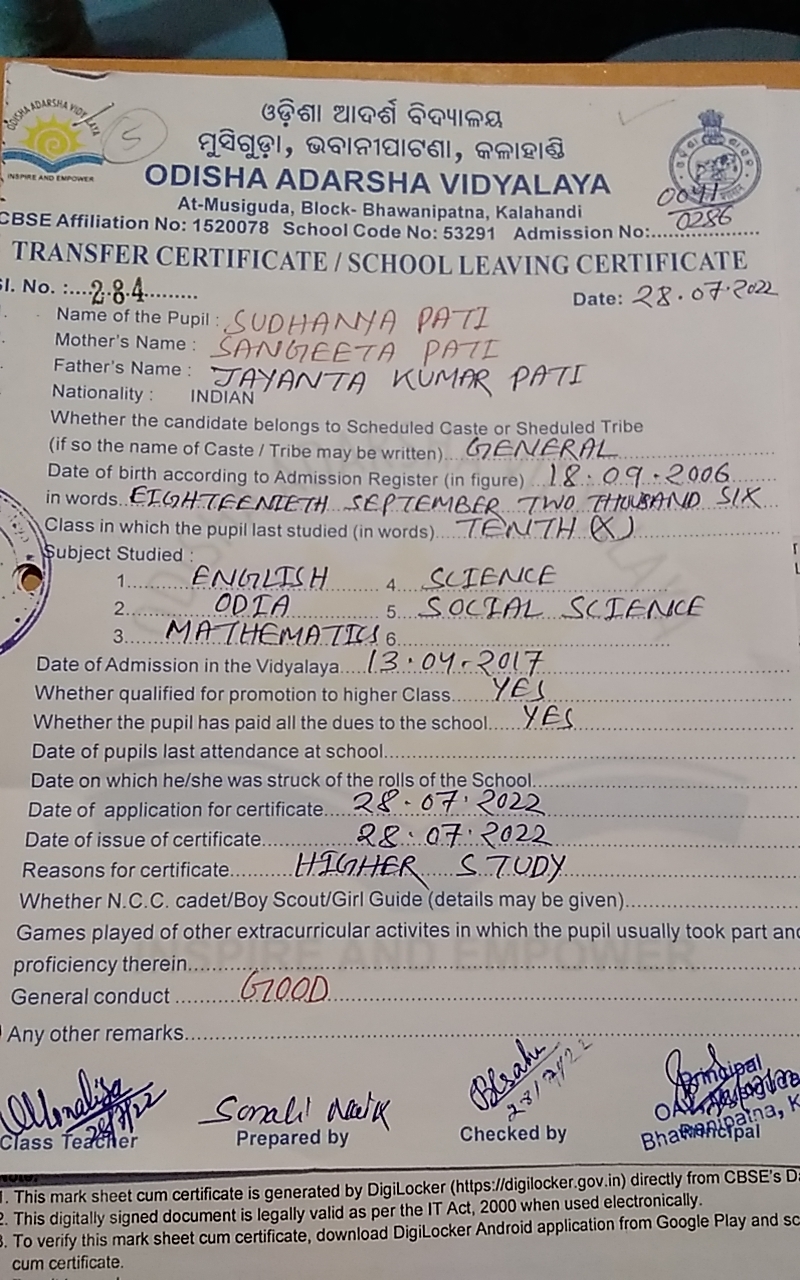 ODISHA ADARSHA VIDYALAYA
INSPIRE AND EMPOWER
5
ଓଡ଼ିଶା ଆଦର୍ଶ ବିଦ୍ୟାଳୟ
ମୁସିଗୁଡ଼ା, ଭବାନୀପାଟଣା, କଳାହାଣ୍ଡି
ODISHA ADARSHA VIDYALAYA
At-Musiguda, Block- Bhawanipatna, Kalahandi
0041
CBSE Affiliation No: 1520078 School Code No: 53291 Admission No:.....0286
TRANSFER CERTIFICATE / SCHOOL LEAVING CERTIFICATE
Sl. No. :....284.........
Date: 28.07.2022
Name of the Pupil : SUDHANYA PATI
Mother's Name : SANGEETA PATI
Father's Name : JAYANTA KUMAR PATI
Nationality : INDIAN
Whether the candidate belongs to Scheduled Caste or Sheduled Tribe
(if so the name of Caste / Tribe may be written)...GENERAL
Date of birth according to Admission Register (in figure) ...18.09.2006
in words..EIGHTEENIETH SEPTEMBER TWO THOUSAND SIX
Class in which the pupil last studied (in words)...TENTH (X)
Subject Studied :
1. ENGLISH 4. SCIENCE
2. ODIA 5. SOCIAL SCIENCE
3. MATHEMATICS 6.
Date of Admission in the Vidyalaya....13.04.2017
Whether qualified for promotion to higher Class......YES
Whether the pupil has paid all the dues to the school.....YES
Date of pupils last attendance at school......
Date on which he/she was struck of the rolls of the School......
Date of application for certificate....28.07.2022
Date of issue of certificate......28.07.2022
Reasons for certificate.......HIGHER STUDY
Whether N.C.C. cadet/Boy Scout/Girl Guide (details may be given)......
Games played of other extracurricular activites in which the pupil usually took part and
proficiency therein......
General conduct ......GOOD
Any other remarks......
INSPIRE AND EMPOWER
28/7/22
Sonali Naik
BSahu
28/7/22
Principal
Bhawanipatna, K
Class Teacher
Prepared by
Checked by
Principal
Note:
1. This mark sheet cum certificate is generated by DigiLocker (https://digilocker.gov.in) directly from CBSE's Da
2. This digitally signed document is legally valid as per the IT Act, 2000 when used electronically.
3. To verify this mark sheet cum certificate, download DigiLocker Android application from Google Play and sc
cum certificate.